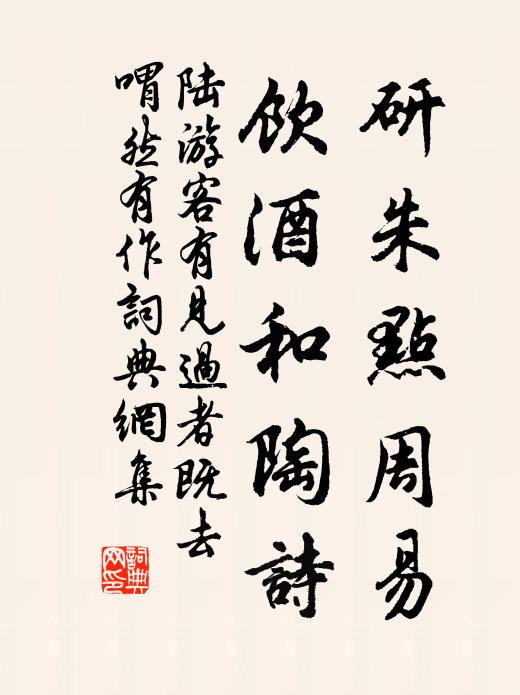 研朱點周易
飲酒和陶詩
陆游客有見過者既去
喟然有作詞典網集
詞典網印